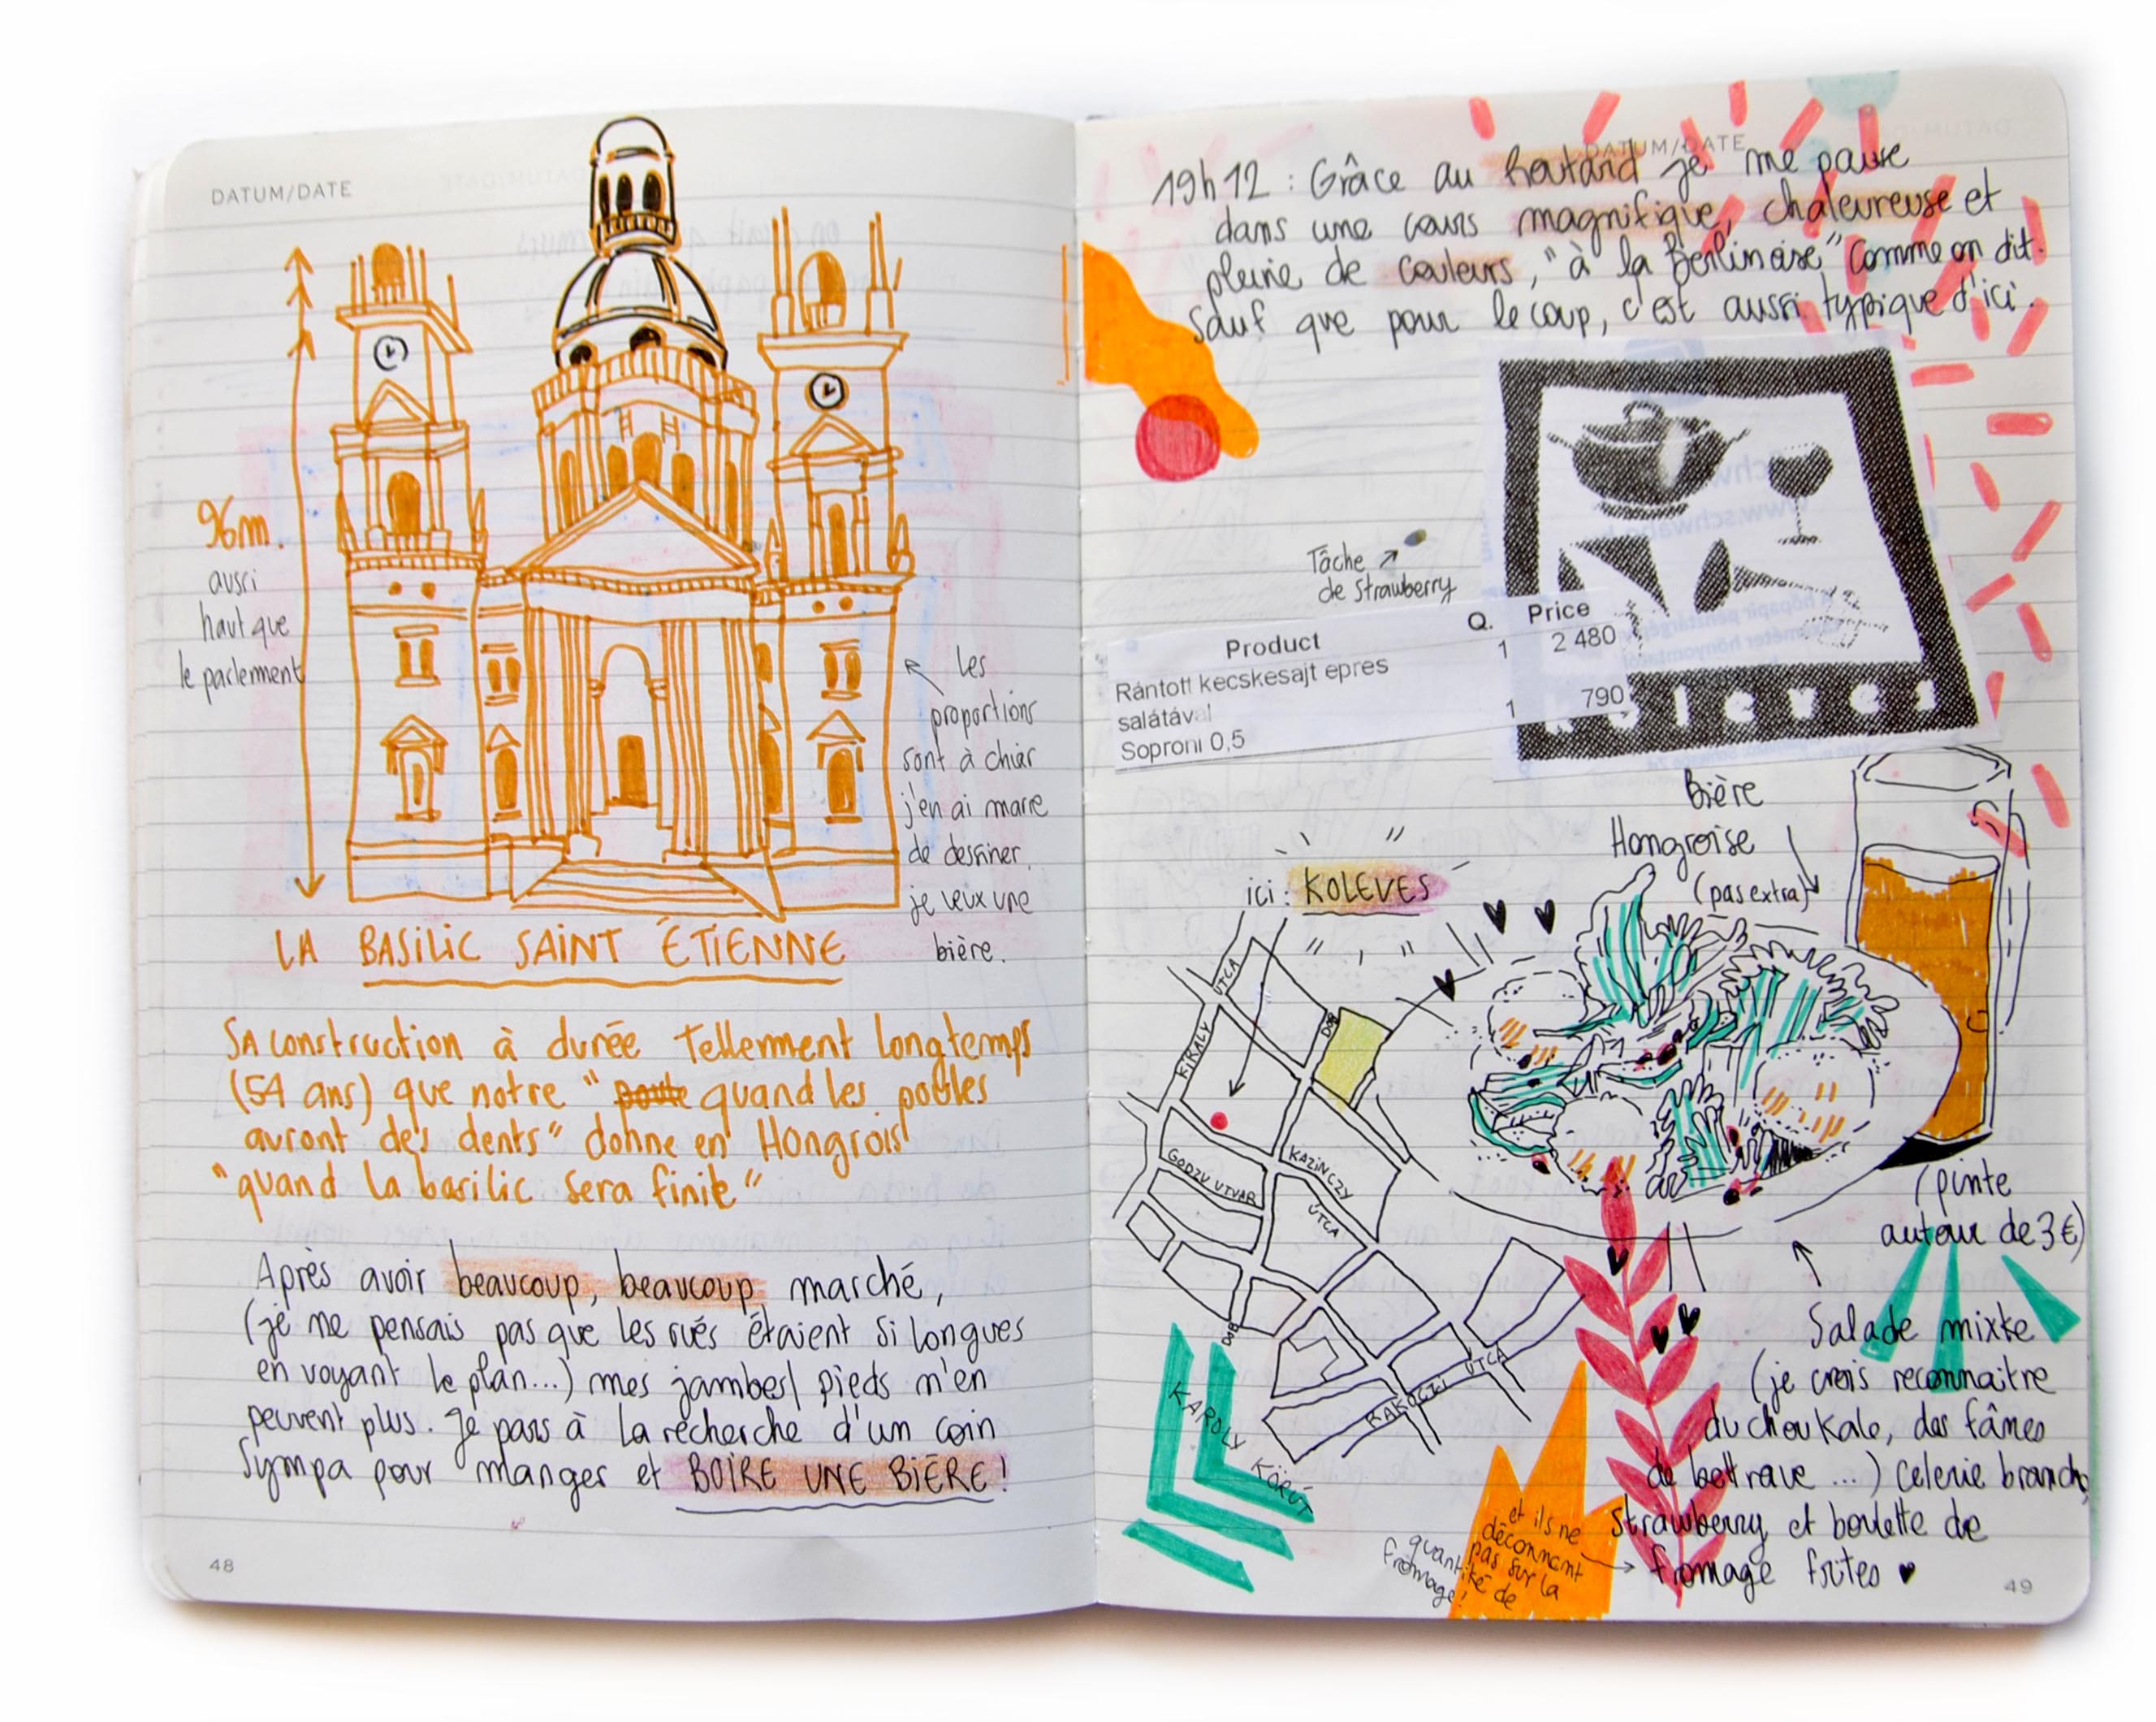 DATUM/DATE
96m.
aussi
haut que
le parlement
Les
proportions
sont à chier
j'en ai marre
de dessiner,
je veux une
bière.
LA BASILIC SAINT ÉTIENNE
SA construction à durée Tellement Longtemps
(54 ans) que notre " poule quand les poules
auront des dents" donne en Hongrois
"quand la basilic sera finie"
Après avoir beaucoup, beaucoup marché,
(je ne pensais pas que les rues étaient si longues
en voyant le plan...) mes jambes/ pieds n'en
peuvent plus. Je pars à la recherche d'un coin
Sympa pour manger et BOIRE UNE BIÈRE!
48
DATUM/DATE
19h12 : Grâce au Routard je me pause
dans une cours magnifique, chaleureuse et
pleine de couleurs, "à la Berlinoise" comme on dit.
Sauf que pour le coup, c'est aussi typique d'ici.
Tâche
de Strawberry
Product Q. Price
Rántott kecskesajt epres 1 2 480
salátával
Soproni 0,5 1 790
Bière
Hongroise
(pas extra)
ici : KOLEVES
UTCA
KIRALY
DOB
GODZU UTVAR
KAZINCZY
UTCA
DOB
RAKOCZI UTCA
KAROLY KÖRÚT
(pinte
autour de 3€)
Salade mixte
(je crois reconnaitre
du chou Kale, des fânes
de bettrave ...) Celerie branche,
Strawberry et boulette de
fromage frites
et ils ne
déconnent
pas sur la
quantité de
fromage!
49